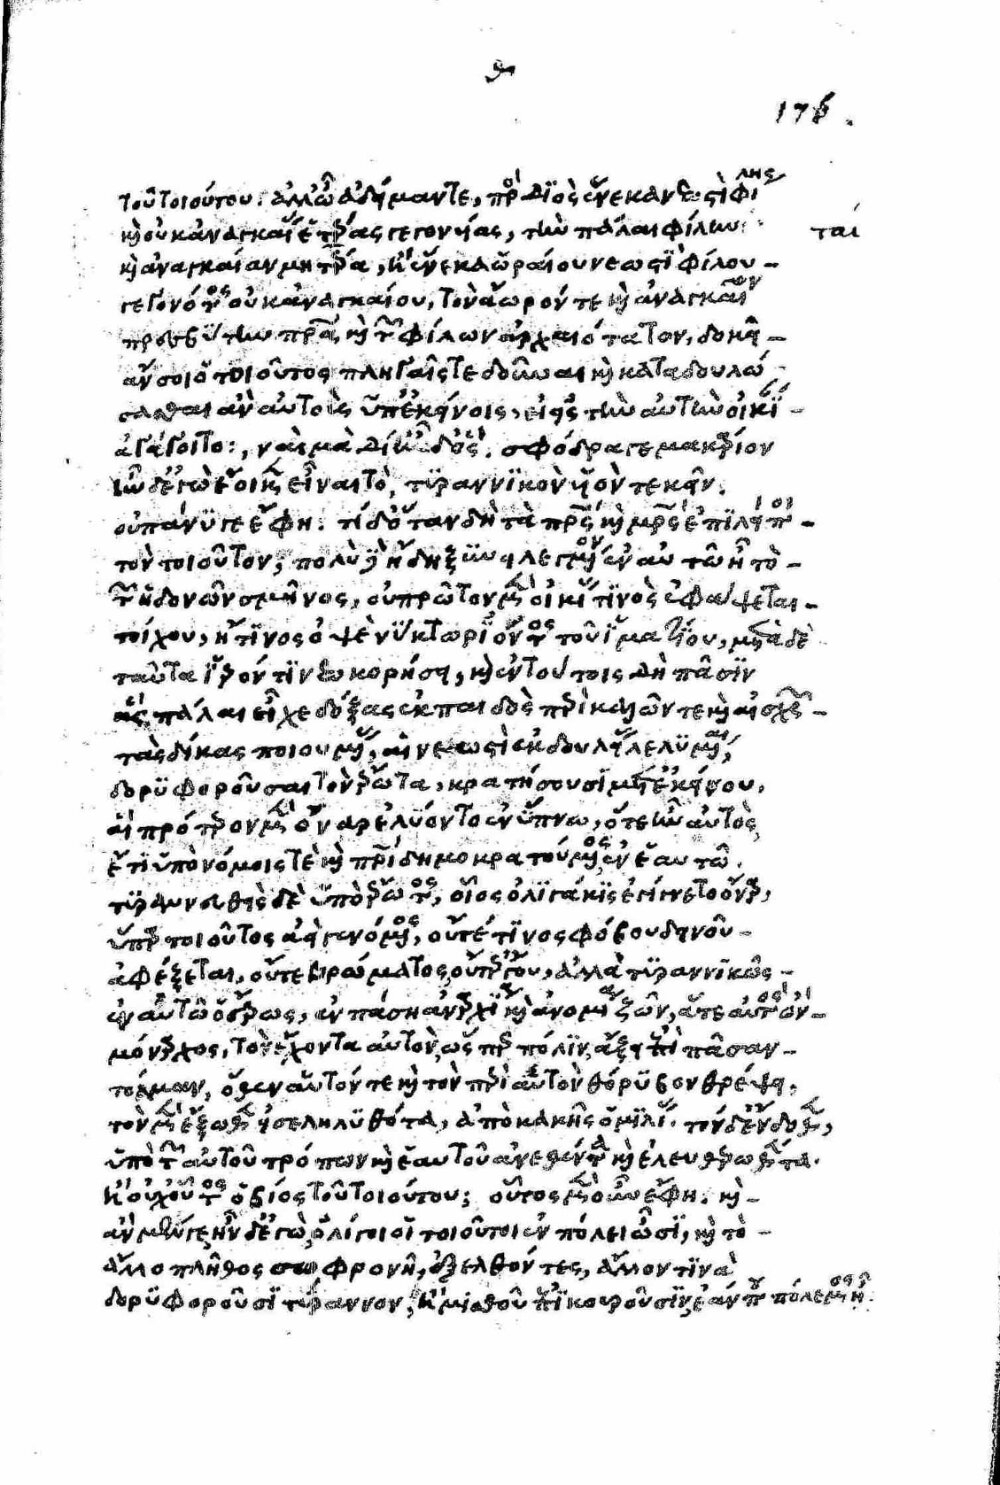 θ
176.
τοῦ τοιούτου: ἀλλ' ὦ ἀδείμαντε, πρὸς διὸς ἕνεκα νεωστὶ φίλης
καὶ οὐκ ἀναγκαίας ἑτέρας γεγονυίας, τὴν πάλαι φίλην
ται
καὶ ἀναγκαίαν μητέρα, καὶ ἕνεκα ὡραίου νεωστὶ φίλου –
γεγονότος οὐκ ἀναγκαίου, τὸν ἄωρόν τε καὶ ἀναγκαῖον
πρεσβύτην πατέρα καὶ τῶν φίλων ἀρχαιότατον, δοκεῖ –
ἄν σοι ὁ τοιοῦτος πληγαῖς τε δοῦναι καὶ καταδουλώ
σασθαι ἂν αὐτοὺς ὑπ' ἐκείνοις, εἰ εἰς τὴν αὐτὴν οἰκίαν –
ἀγάγοιτο:, ναὶ μὰ δί' ἦ δ' ὅς. σφόδρα γε μακάριον
ἦν δ' ἐγὼ ἔοικεν εἶναι τὸ, τυραννικὸν υἱὸν τεκεῖν.
οὐ πάνυ γε ἔφη. τί δ' ὅταν δὴ τὰ πατρὸς καὶ μητρὸς ἐπιλείπῃ –
τὸν τοιοῦτον; πολὺ δὲ ἤδη ξυνειλεγμένον ἐν αὐτῷ ᾖ τὸ –
τῶν ἡδονῶν σμῆνος, οὐ πρῶτον μὲν οἰκίας τινὸς ἐφάψεται –
τοίχου, ἤ τινος ὀψὲ νύκτωρ ἰόντος τοῦ ἱματίου, μετὰ δὲ
ταῦτα ἱερόν τι νεωκορήσει, καὶ ἐν τούτοις δὴ πᾶσιν
ἃς πάλαι εἶχε δόξας ἐκ παιδὸς περὶ καλῶν τε καὶ αἰσχρῶν –
τὰς δίκας ποιουμένας, αἱ νεωστὶ ἐκ δουλείας λελυμέναι,
δορυφοροῦσαι τὸν ἔρωτα, κρατήσουσι μετ' ἐκείνου,
αἳ πρότερον μὲν ὄναρ ἐλύοντο ἐν ὕπνῳ, ὅτε ἦν αὐτὸς
ἔτι ὑπὸ νόμοις τὲ καὶ πατρὶ δημοκρατούμενος ἐν ἑαυτῷ.
τυραννευθεὶς δὲ ὑπὸ ἔρωτος, οἷος ὀλιγάκις ἐγίγνετο ὄναρ,
ὕπαρ τοιοῦτος ἀεὶ γενόμενος, οὔτέ τινος φόβου δεινοῦ –
ἀφέξεται, οὔτε βρώματος, οὔτ' ἔργου, ἀλλὰ τυραννικῶς –
ἐν αὐτῷ ὁ ἔρως, ἐν πάσῃ ἀναρχίᾳ καὶ ἀνομίᾳ ζῶν, ἅτε αὐτὸς ὢν –
μόναρχος, τὸν ἔχοντα αὐτὸν ὥσπερ πόλιν, ἄξει ἐπὶ πᾶσαν –
τόλμαν, ὅθεν αὑτόν τε καὶ τὸν περὶ αὐτὸν θόρυβον θρέψει,
τὸν μὲν ἔξωθεν εἰσεληλυθότα, ἀπὸ κακῆς ὁμιλίας. τὸν δ' ἔνδοθεν,
ὑπὸ τῶν αὐτοῦ τρόπων καὶ ἑαυτοῦ ἀνεθέντα καὶ ἐλευθερωθέντα.
ἢ οὐχ οὗτος ὁ βίος τοῦ τοιούτου; οὗτος μὲν οὖν ἔφη. καὶ –
ἂν μέν γε ἦν δ' ἐγὼ ὀλίγοι οἱ τοιοῦτοι ἐν πόλει ὦσι, καὶ τὸ –
ἄλλο πλῆθος σωφρονῇ, ἐξελθόντες, ἄλλον τινὰ
δορυφοροῦσι τύραννον, ἢ μισθοῦ ἐπικουροῦσιν, ἐάν που πόλεμος ᾖ.